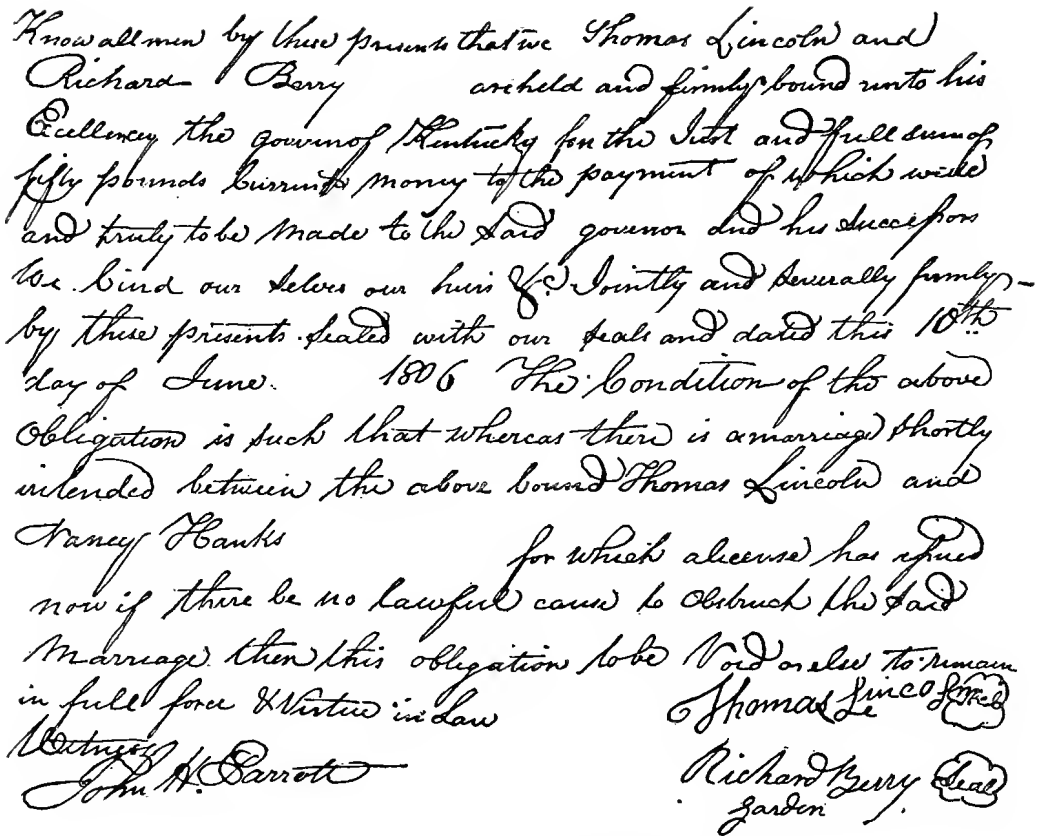 Know all men by these presents that we Thomas Lincoln and
Richard Berry are held and firmly bound unto his
Excellency the govenor of Kentucky for the Just and full sum of
fifty pounds Current money to the payment of which well
and truly to be Made to the said govenor and his successors
We bind our selves our heirs &c Jointly and severally firmly
by these presents sealed with our seals and dated this 10th
day of June 1806 The Condition of the above
Obligation is such that whereas there is a marriage shortly
intended between the above bound Thomas Lincoln and
Nancy Hanks for which a license has issued
now if there be no lawful cause to obstruct the said
Marriage then this obligation to be Void or else to remain
in full force & Virtue in Law
Thomas Lincoln Seal
Witness
John H. Parrott
Richard Berry Seal
garden